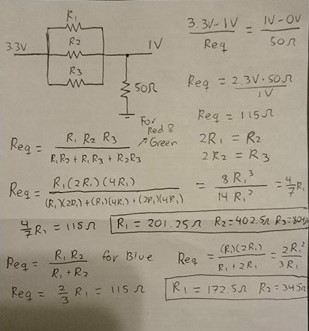 R₁
3.3V R₂ 1V
R₃
50Ω
(3.3V-1V)/Req = (1V-0V)/50Ω
Req = (2.3V·50Ω)/1V
Req = 115Ω
2R₁ = R₂
2R₂ = R₃
For Red & Green
Req = (R₁ R₂ R₃)/(R₁R₂ + R₁R₃ + R₂R₃)
Req = (R₁(2R₁)(4R₁))/((R₁)(2R₁)+(R₁)(4R₁)+(2R₁)(4R₁)) = 8R₁³/14R₁² = 4/7 R₁
4/7 R₁ = 115Ω R₁ = 201.25Ω R₂ = 402.5Ω
Req = (R₁R₂)/(R₁+R₂) for Blue Req = ((R₁)(2R₁))/(R₁+2R₁) = 2R₁²/3R₁
Req = 2/3 R₁ = 115Ω R₁ = 172.5Ω R₂ = 345Ω